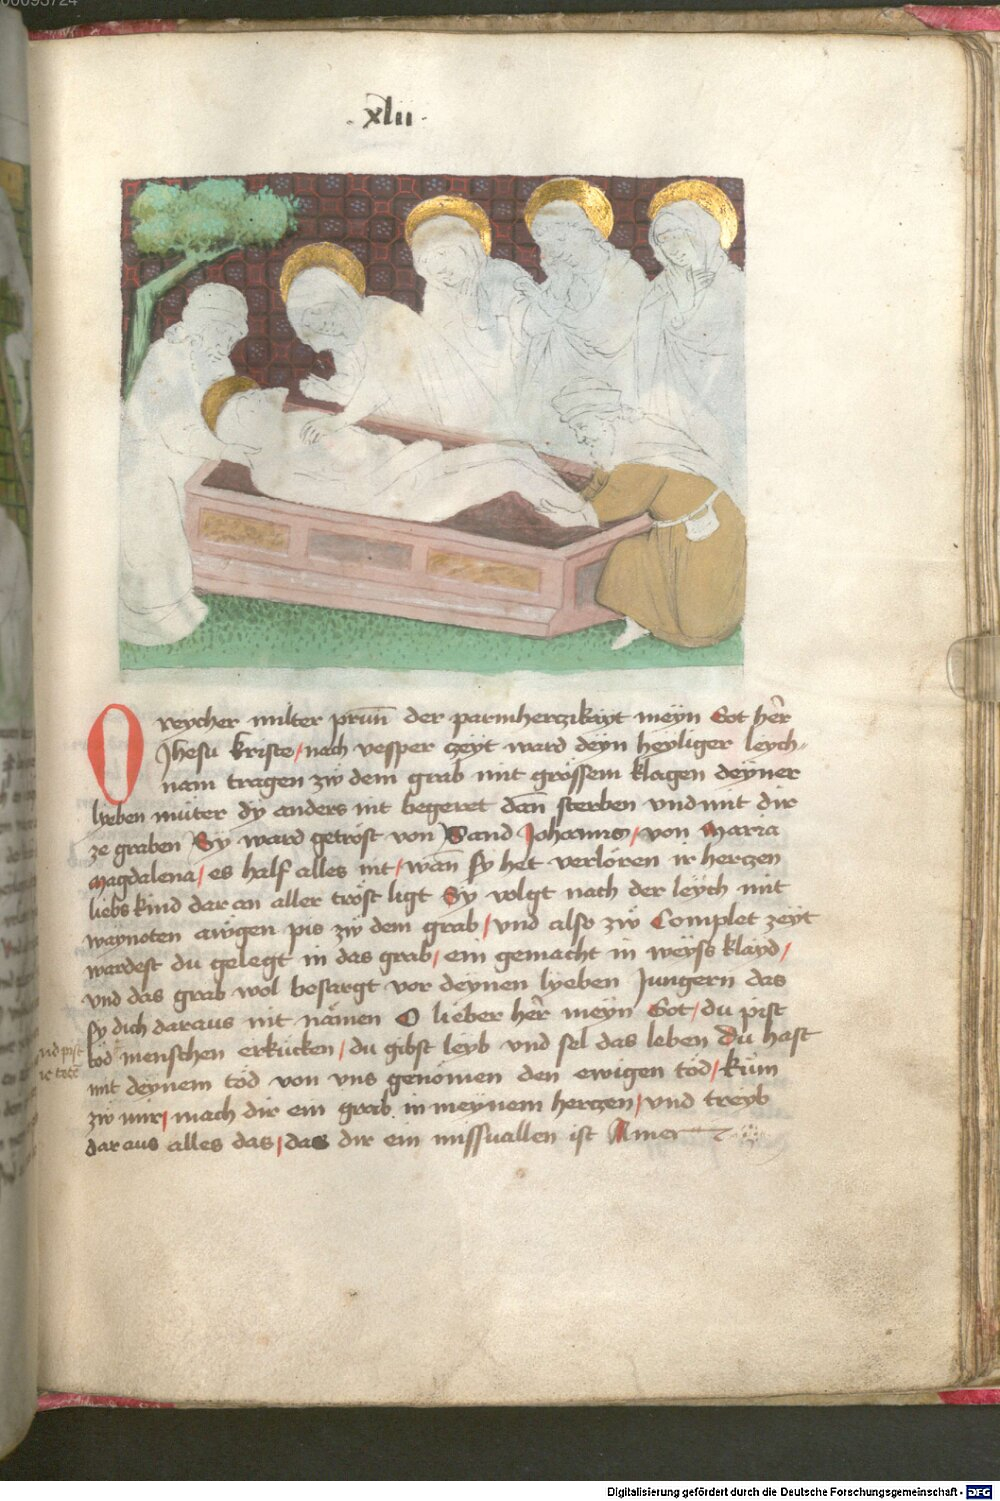 00093724
· xlii ·
O reycher milter prun̄ der parmherczikayt meyn Got her̄
Jhesu kriste / nach vesper czeyt ward deyn heyliger leych-
nam tragen zẅ dem grab mit grössem klagen deyner
lyeben müter dy anders nit begeret dan̄ sterben vnd mit dir
ze graben Sy ward getröst von Sand Johanns / von Maria
Magdalena / es half alles nit / wan̄ sy het verlören ir herczen
liebs kind dar an aller tröst ligt Sy volgt nach der leych mit
waynoten awgen pis zẅ dem grab / vnd also zẅ Complet zeyt
wardest du gelegt in das grab / ein gemacht in weyss klayd /
vnd das grab wol besargt vor deynen lyeben Jungern das
sy dich daraus nit nämen O lieber her̄ meyn Got / du pist
töd menschen erkücken / du gibst leyb vnd sel das leben Du hast
mit deynem töd von vns genömen den ewigen töd / küm
zẅ mir / mach dir ein grab in meynem herczen / vnd treyb
dar aus alles das / das dir ein missuallen ist Amen
Digitalisierung gefördert durch die Deutsche Forschungsgemeinschaft - DFG